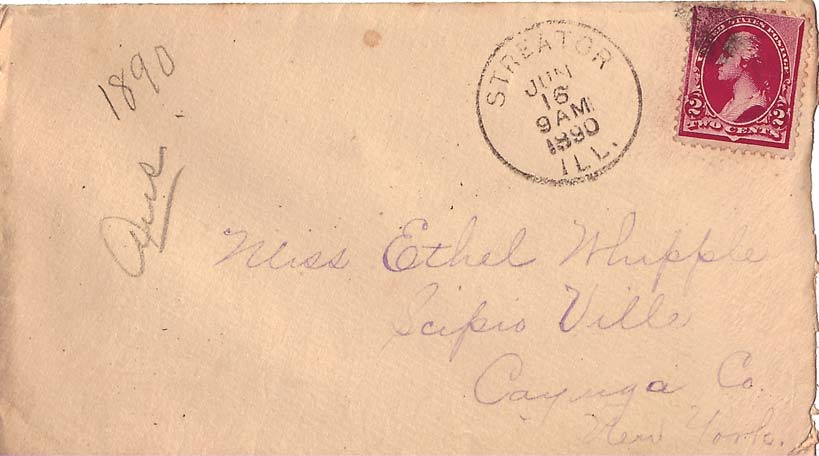 1890
Ans.
STREATOR
JUN
16
9 AM
1890
ILL.
UNITED STATES POSTAGE
2 2
TWO CENTS
Miss Ethel Whipple
Scipio Ville
Cayuga Co.
New York.